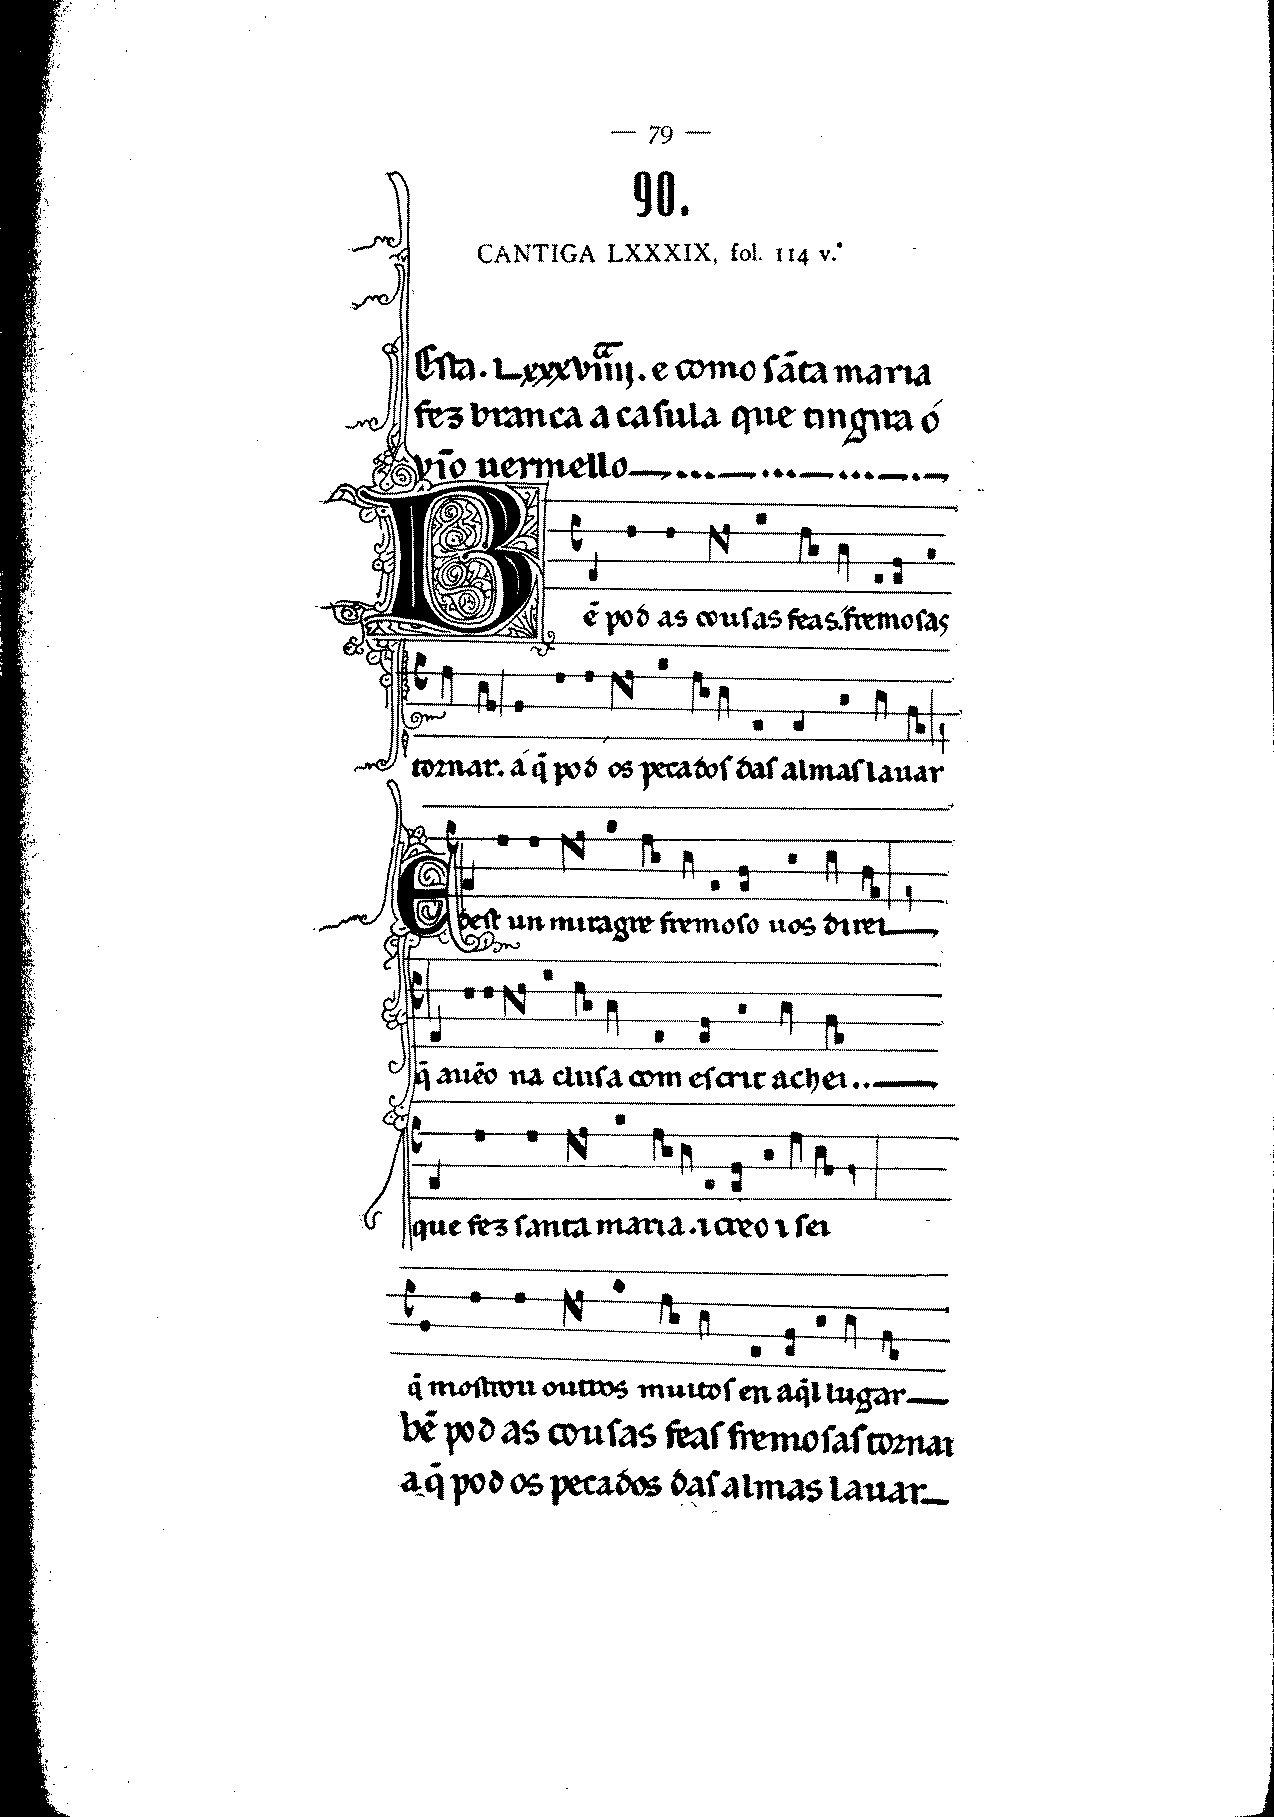 — 79 —
90.
CANTIGA LXXXIX, fol. 114 v.º
Esta . Lxxxviiijª. e como sãta maria
fez branca a casula que tingira ó
vĩo uermello
Bẽ pod as cousas feas. fremosas
tornar. á q̄ pod os pecados das almas lauar
E dest un miragre fremoso uos direi
q̄ auẽo na clusa com escrit achei..
que fez santa maria . ⁊ creo ⁊ sei
q̄ mostrou outros muitos en aq̄l lugar
bẽ pod as cousas feas fremosas tornar
a q̄ pod os pecados das almas lauar